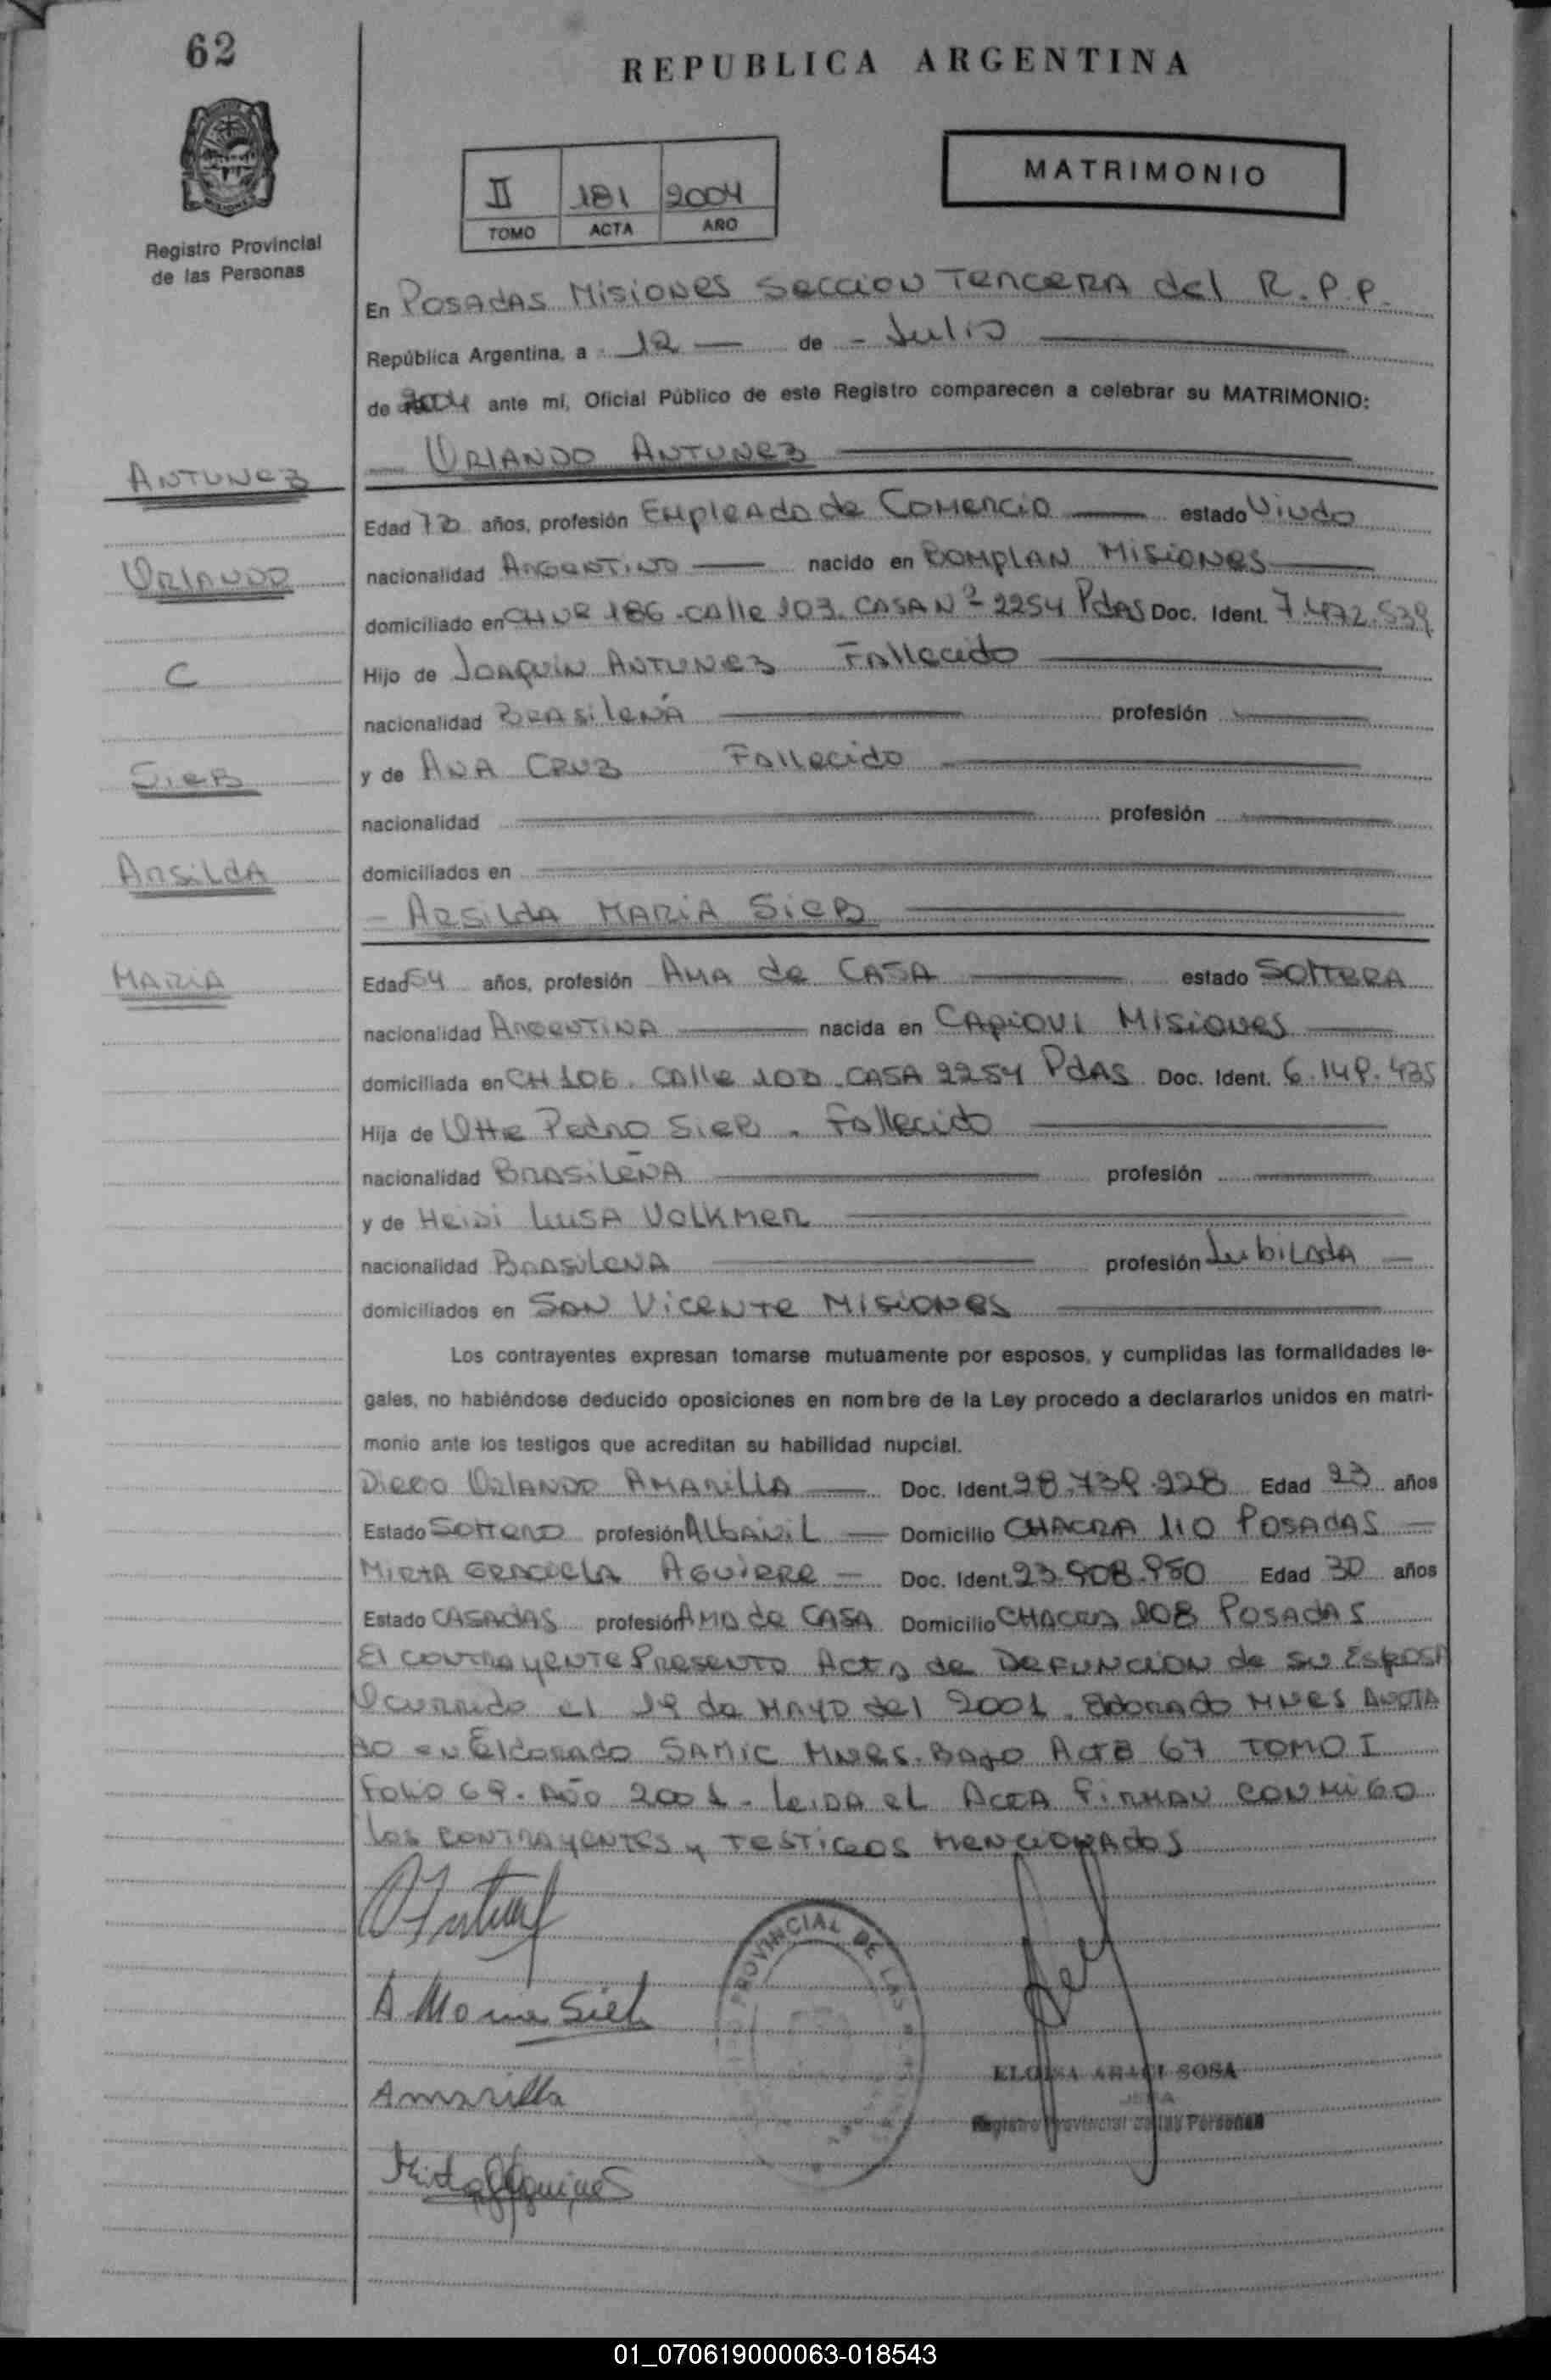 62
REPUBLICA ARGENTINA
II 181 2004
TOMO ACTA AÑO
MATRIMONIO
Registro Provincial
de las Personas
En POSADAS MISIONES SECCION TERCERA del R.P.P.
República Argentina, a 12 — de - Julio
de 2004 ante mí, Oficial Público de este Registro comparecen a celebrar su MATRIMONIO:
ORLANDO ANTUNEZ
ANTUNEZ
Edad años, profesión EMpleAdo de COMERCIO estado Viudo
ORLANDO
nacionalidad ARGENTINO nacido en BOMPLAN MISIONES
domiciliado en CALLE 103. CASA Nº 2254 PdAS Doc. Ident. 7.472.539
C
Hijo de JOAQUIN ANTUNEZ FAllecido
nacionalidad BRASileÑA profesión
SIEB
y de ANA CRUZ FAllecido
nacionalidad profesión
ARSILDA
domiciliados en
- ARSILDA MARIA SIEB
MARIA
Edad 54 años, profesión AMA de CASA estado SOLTERA
nacionalidad ARGENTINA nacida en CAPIOVI MISIONES
domiciliada en CH CAlle CASA 2254 PdAS Doc. Ident.
Hija de OTTE PEDRO SIEB. FAllecido
nacionalidad BRASILEÑA profesión
y de HEIDI LUISA VOLKMER
nacionalidad BRASILENA profesión JubiLADA
domiciliados en SAN VICENTE MISIONES
Los contrayentes expresan tomarse mutuamente por esposos, y cumplidas las formalidades le-
gales, no habiéndose deducido oposiciones en nombre de la Ley procedo a declararlos unidos en matri-
monio ante los testigos que acreditan su habilidad nupcial.
DIEGO ORLANDO AMARILLA Doc. Ident. 28.739.228 Edad 23 años
Estado SOLTERO profesión ALBAÑIL Domicilio CHACRA 110 POSADAS
MIRTA GRACIELA AGUIRRE Doc. Ident. 23.908.950 Edad 30 años
Estado CASADAS profesión AMA de CASA Domicilio CHACRA 108 POSADAS
El CONTRAYENTE PRESENTO ACTA de DEFUNCION de SU ESPOSA
Ocurrido el 19 de MAYO del 2001. ELDORADO MNES ANOTA
DO EN ELDORADO SAMIC MNES. BAJO ACTA 67 TOMO I
FOLIO 69. AÑO 2001 - LEIDA EL ACTA FIRMAN CONMIGO
los CONTRAYENTES y TESTIGOS MENCIONADOS
A Maria Sieb
PROVINCIAL DE LAS
ELOISA ARACI SOSA
Registro Provincial de las Personas
Amarilla
01_070619000063-018543